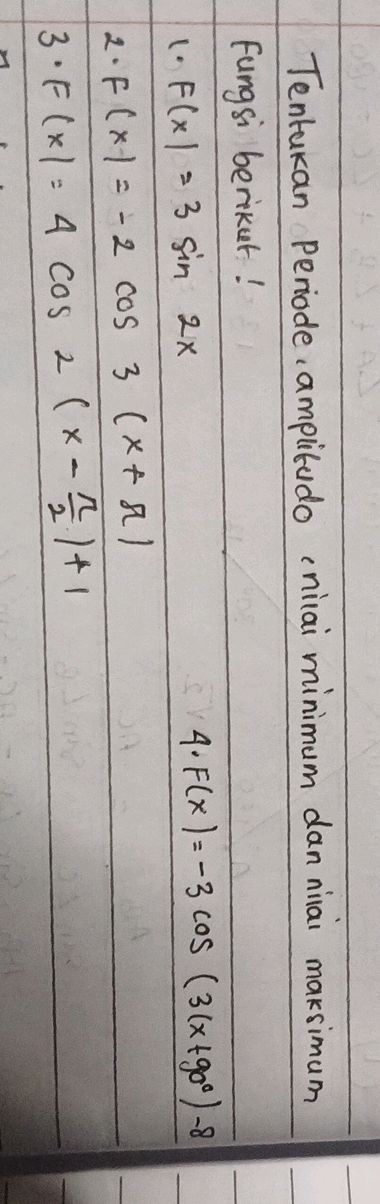 Tentukan periode, amplitudo, nilai minimum dan nilai maksimum
fungsi berikut!
1. F(x) = 3 sin 2x
4. F(x) = -3 cos (3(x+90°)-8
2. F(x) = -2 cos 3 (x+π)
3. F(x) = 4 cos 2 (x - π/2) + 1